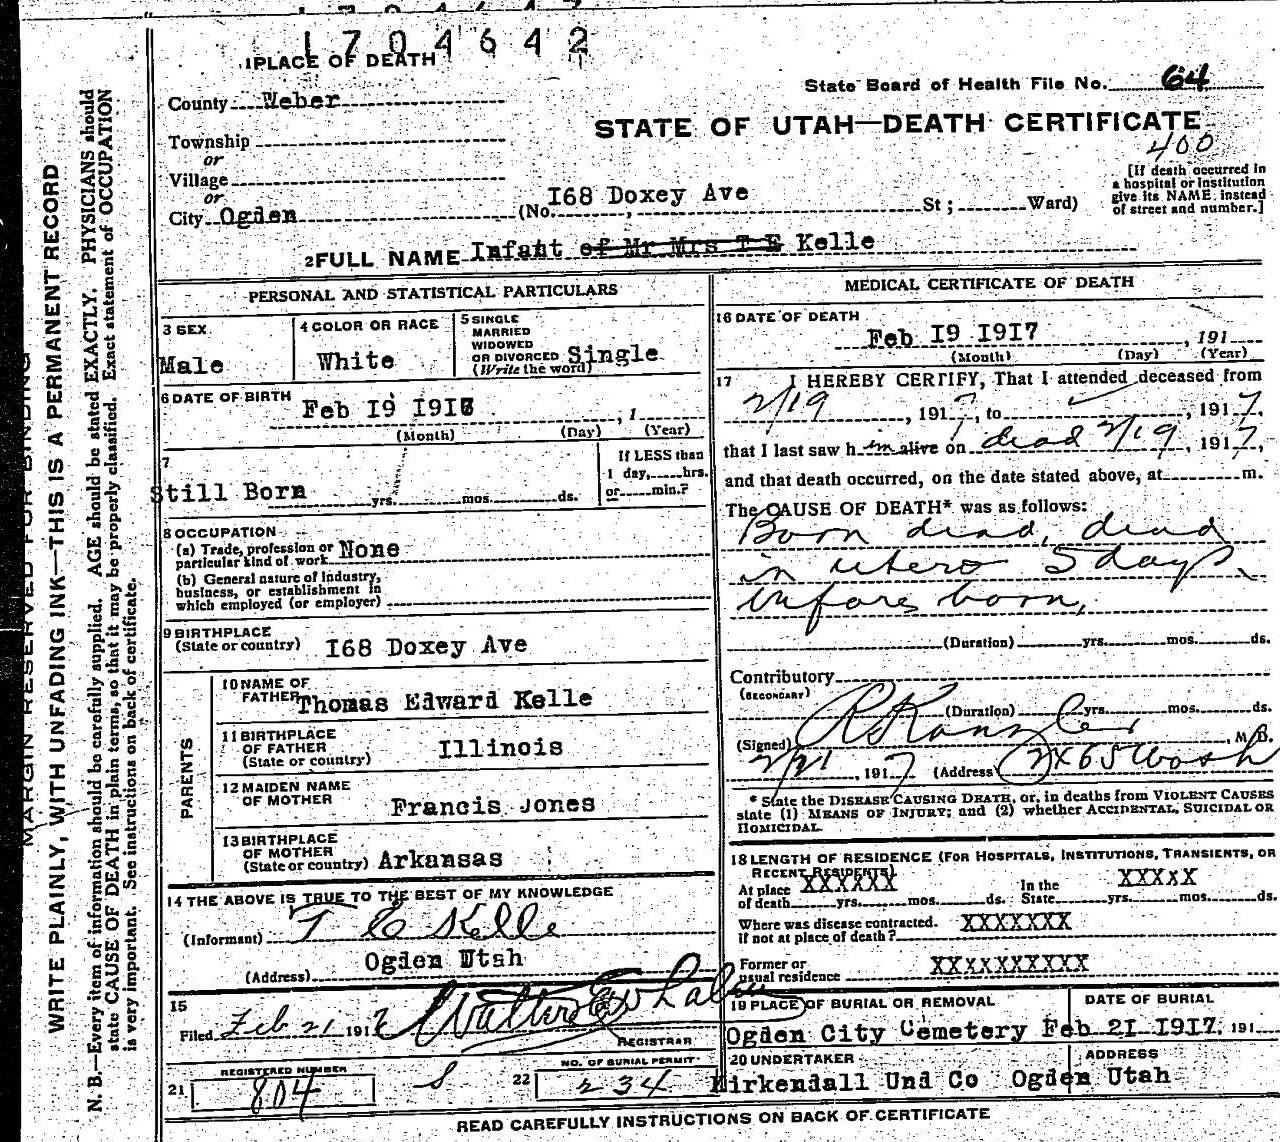 1704642
1 PLACE OF DEATH
State Board of Health File No. 64
County Weber
STATE OF UTAH—DEATH CERTIFICATE
400
Township
or
Village
or
City Ogden
(No. I68 Doxey Ave St; Ward)
[If death occurred in
a hospital or institution
give its NAME instead
of street and number.]
2 FULL NAME Infant of Mr Mrs T E Kelle
PERSONAL AND STATISTICAL PARTICULARS
3 SEX
Male
4 COLOR OR RACE
White
5 SINGLE
MARRIED
WIDOWED
OR DIVORCED Single
(Write the word)
6 DATE OF BIRTH
Feb I9 I917, 1
(Month) (Day) (Year)
7
Still Born yrs. mos. ds.
If LESS than
1 day, hrs.
or min.?
8 OCCUPATION
(a) Trade, profession or
particular kind of work None
(b) General nature of industry,
business, or establishment in
which employed (or employer)
9 BIRTHPLACE
(State or country) I68 Doxey Ave
PARENTS
10 NAME OF
FATHER Thomas Edward Kelle
11 BIRTHPLACE
OF FATHER
(State or country) Illinois
12 MAIDEN NAME
OF MOTHER Francis Jones
13 BIRTHPLACE
OF MOTHER
(State or country) Arkansas
14 THE ABOVE IS TRUE TO THE BEST OF MY KNOWLEDGE
(Informant) T E Kelle
(Address) Ogden Utah
15
Filed Feb 21 1917 Walter E Whalen
REGISTRAR
21 REGISTERED NUMBER
804
S
22 NO. OF BURIAL PERMIT
234
MEDICAL CERTIFICATE OF DEATH
16 DATE OF DEATH
Feb I9 I9I7, 191
(Month) (Day) (Year)
17 I HEREBY CERTIFY, That I attended deceased from
2/19, 1917, to ✓, 1917,
that I last saw him alive on dead 2/19, 1917,
and that death occurred, on the date stated above, at m.
The CAUSE OF DEATH* was as follows:
Born dead, dead
in utero 5 days,
before born,
(Duration) yrs. mos. ds.
Contributory
(SECONDARY)
(Duration) yrs. mos. ds.
(Signed) , M.D.
2/21, 1917 (Address) 2465 Wash
* State the DISEASE CAUSING DEATH, or, in deaths from VIOLENT CAUSES
state (1) MEANS OF INJURY; and (2) whether ACCIDENTAL, SUICIDAL OR
HOMICIDAL.
18 LENGTH OF RESIDENCE (FOR HOSPITALS, INSTITUTIONS, TRANSIENTS, OR
RECENT RESIDENTS)
At place
of death XXXXXX yrs. mos. ds.
In the
State XXXXX yrs. mos. ds.
Where was disease contracted.
if not at place of death? XXXXXXX
Former or
usual residence XXXXXXXXXX
19 PLACE OF BURIAL OR REMOVAL
Ogden City Cemetery
DATE OF BURIAL
Feb 21 I9I7, 191
20 UNDERTAKER
Kirkendall Und Co
ADDRESS
Ogden Utah
READ CAREFULLY INSTRUCTIONS ON BACK OF CERTIFICATE
MARGIN RESERVED FOR BINDING
WRITE PLAINLY, WITH UNFADING INK—THIS IS A PERMANENT RECORD
N. B.—Every item of information should be carefully supplied. AGE should be stated EXACTLY. PHYSICIANS should
state CAUSE OF DEATH in plain terms, so that it may be properly classified. Exact statement of OCCUPATION
is very important. See instructions on back of certificate.